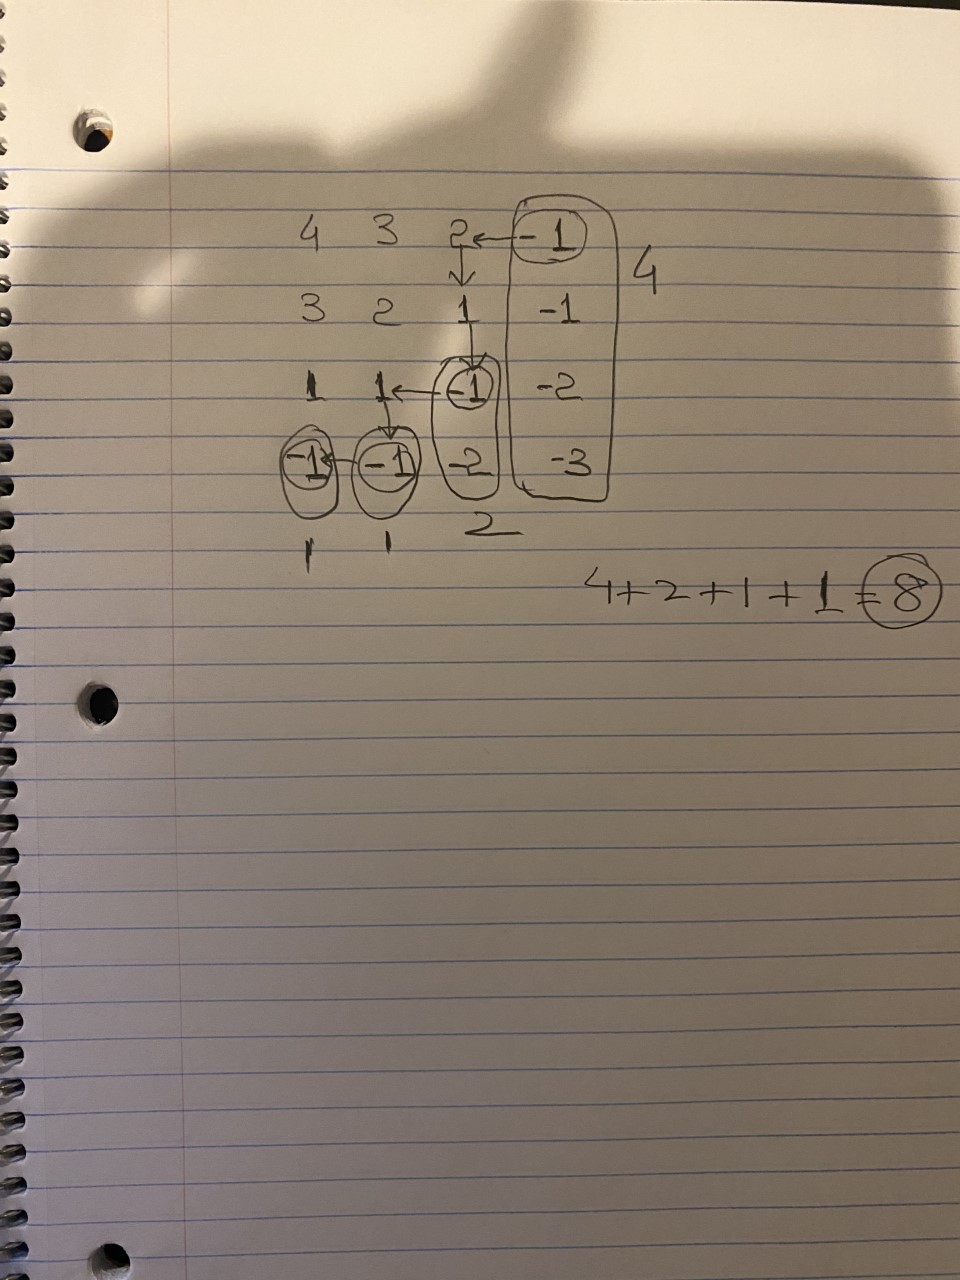 4 3 2 -1
4
3 2 1 -1
1 1 -1 -2
-1 -1 -2 -3
1 1 2
4+2+1+1=8